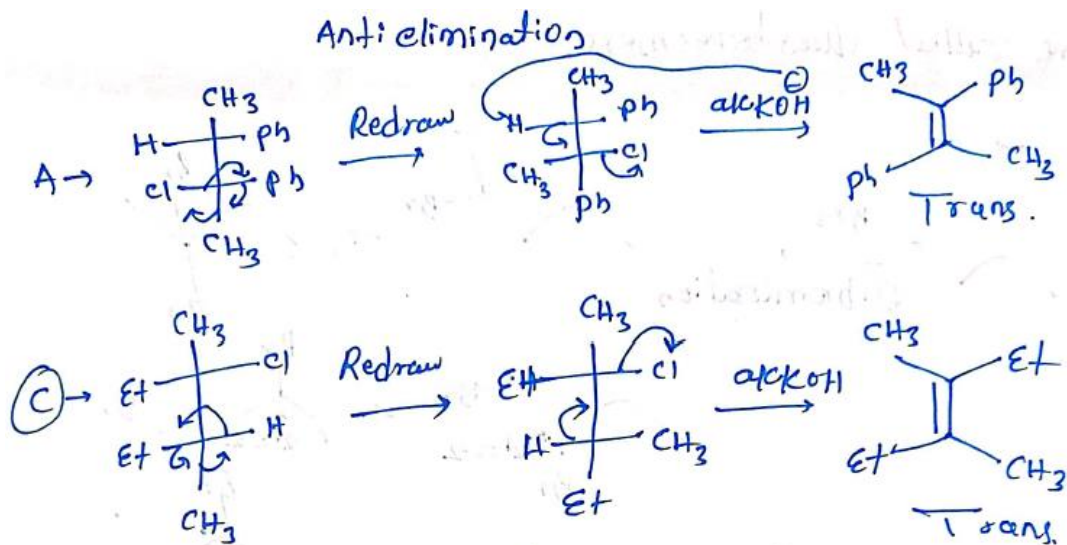 Anti elimination
A → CH3 H Ph Cl Ph CH3 Redraw CH3 H Ph CH3 Cl Ph ⊖ alcKOH CH3 Ph Ph CH3 Trans.
C → CH3 Et Cl Et H CH3 Redraw CH3 Et Cl H CH3 Et alcKOH CH3 Et Et CH3 Trans.